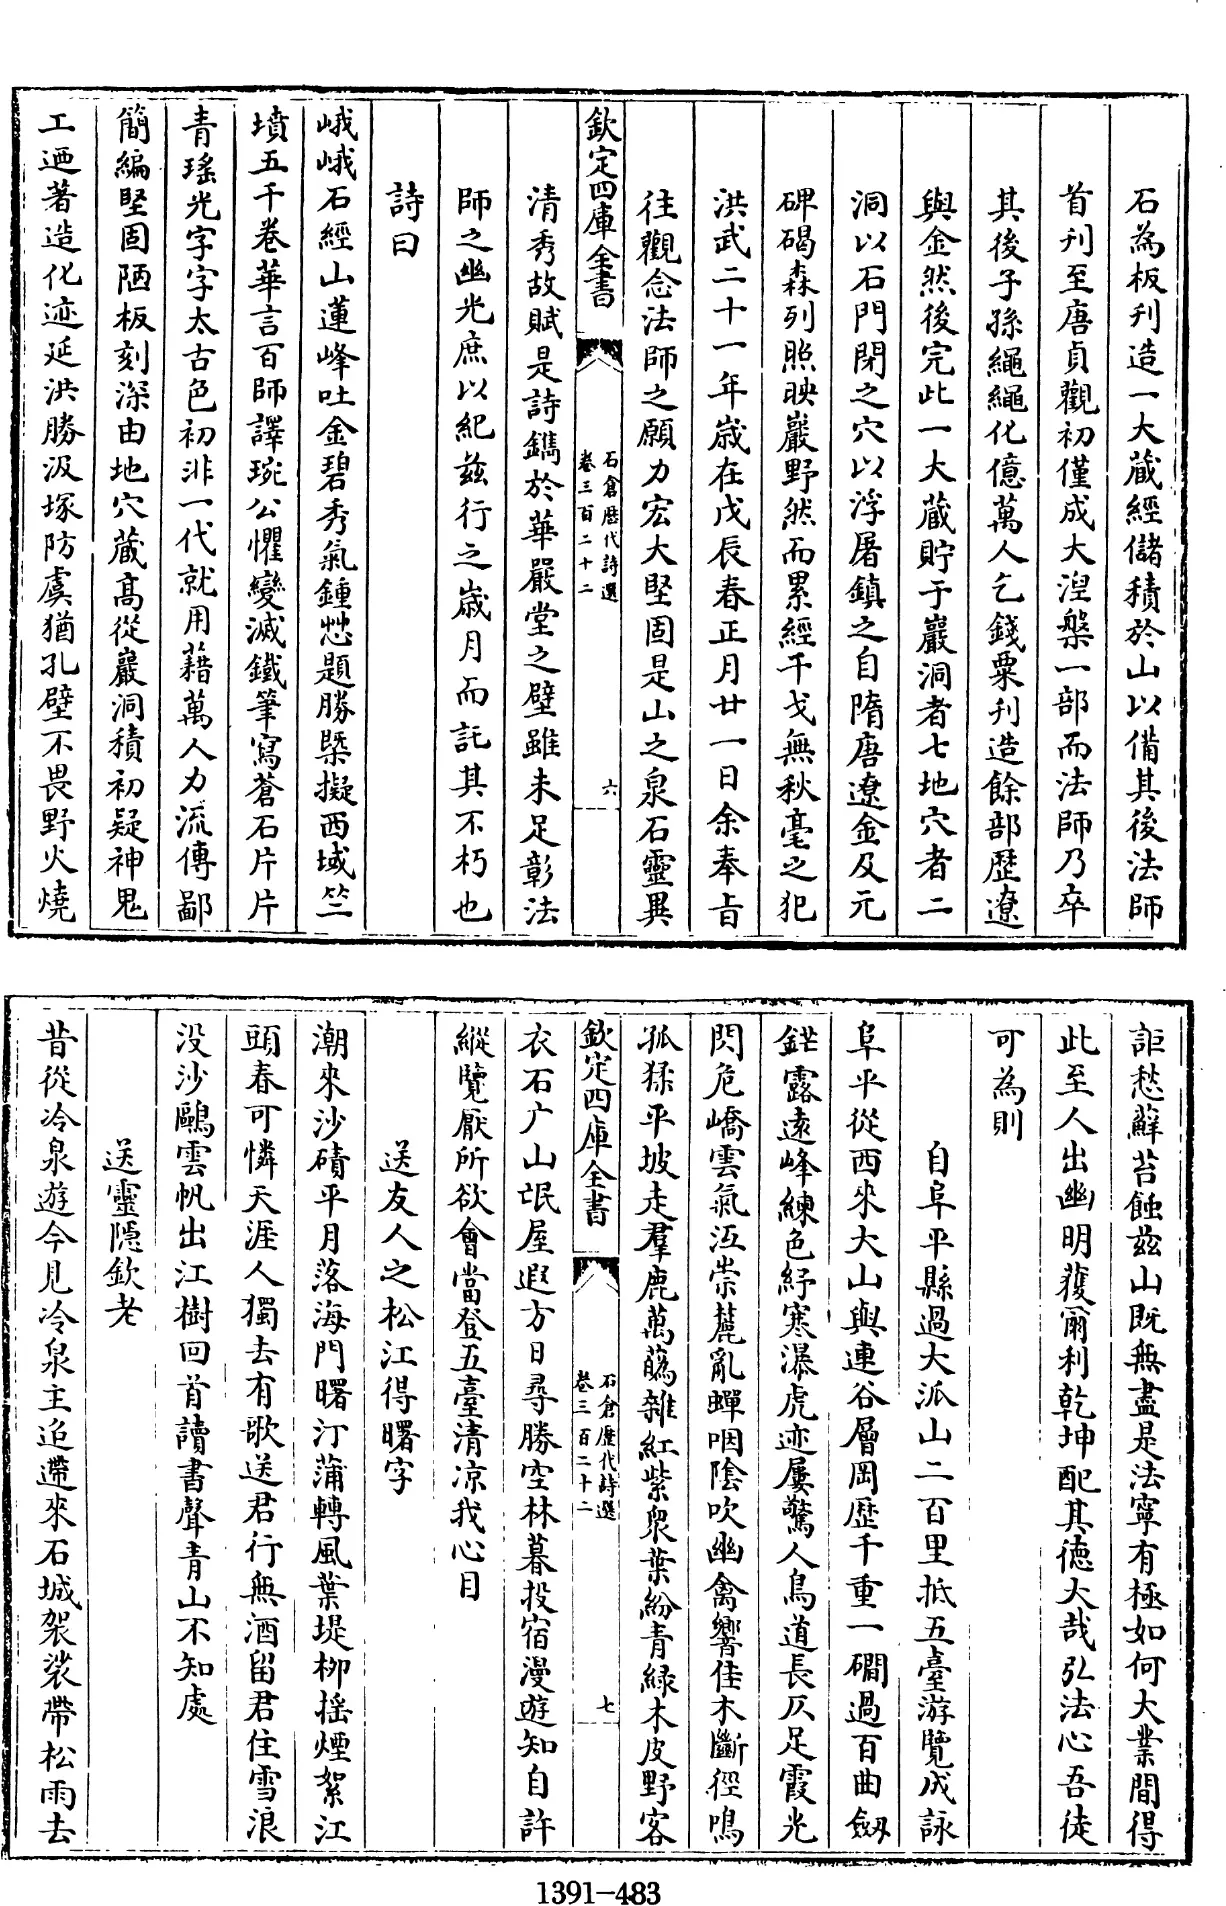 石為板刋造一大藏經儲積於山以備其後法師
首刋至唐貞觀初僅成大涅槃一部而法師乃卒
其後子孫繩繩化億萬人乞錢粟刋造餘部歷遼
與金然後完此一大藏貯于巖洞者七地穴者二
洞以石門閉之穴以浮屠鎮之自隋唐遼金及元
碑碣森列照映巖野然而累經干戈無秋毫之犯
洪武二十一年歲在戊辰春正月廿一日余奉旨
往觀念法師之願力宏大堅固是山之泉石靈異
欽定四庫全書
石倉歷代詩選
卷三百二十二
六
清秀故賦是詩鐫於華嚴堂之壁雖未足彰法
師之幽光庶以紀兹行之歲月而託其不朽也
詩曰
峨峨石經山蓮峰吐金碧秀氣鍾㟧題勝槩擬西域竺
墳五千卷華言百師譯琬公懼變滅鐵筆寫蒼石片片
青瑤光字字太古色初非一代就用藉萬人力流傳鄙
簡編堅固陋板刻深由地穴藏高從巖洞積初疑神鬼
工迺著造化迹延洪勝汲塚防虞猶孔壁不畏野火燒
詎愁蘚苔蝕兹山旣無盡是法寧有極如何大業間得
此至人出幽明獲爾利乾坤配其德大哉弘法心吾徒
可為則
自阜平縣過大派山二百里抵五臺游覽成詠
阜平從西來大山與連谷層岡歷千重一磵過百曲劔
鋩露遠峰練色紓寒瀑虎迹屢驚人鳥道長仄足霞光
閃危嶠雲氣冱崇麓亂蟬咽陰吹幽禽響佳木斷徑鳴
孤猱平坡走羣鹿萬蘤雜紅紫衆葉紛青緑木皮野客
欽定四庫全書
石倉歷代詩選
卷三百二十二
七
衣石广山氓屋遐方日尋勝空林暮投宿漫遊知自許
縱覽厭所欲會當登五臺清凉我心目
送友人之松江得曙字
潮來沙磧平月落海門曙汀蒲轉風葉堤柳揺煙絮江
頭春可憐天涯人獨去有歌送君行無酒留君住雪浪
没沙鷗雲帆出江樹回首讀書聲青山不知處
送靈隱欽老
昔從冷泉遊今見冷泉主迢遰來石城袈裟帶松雨去
1391-483